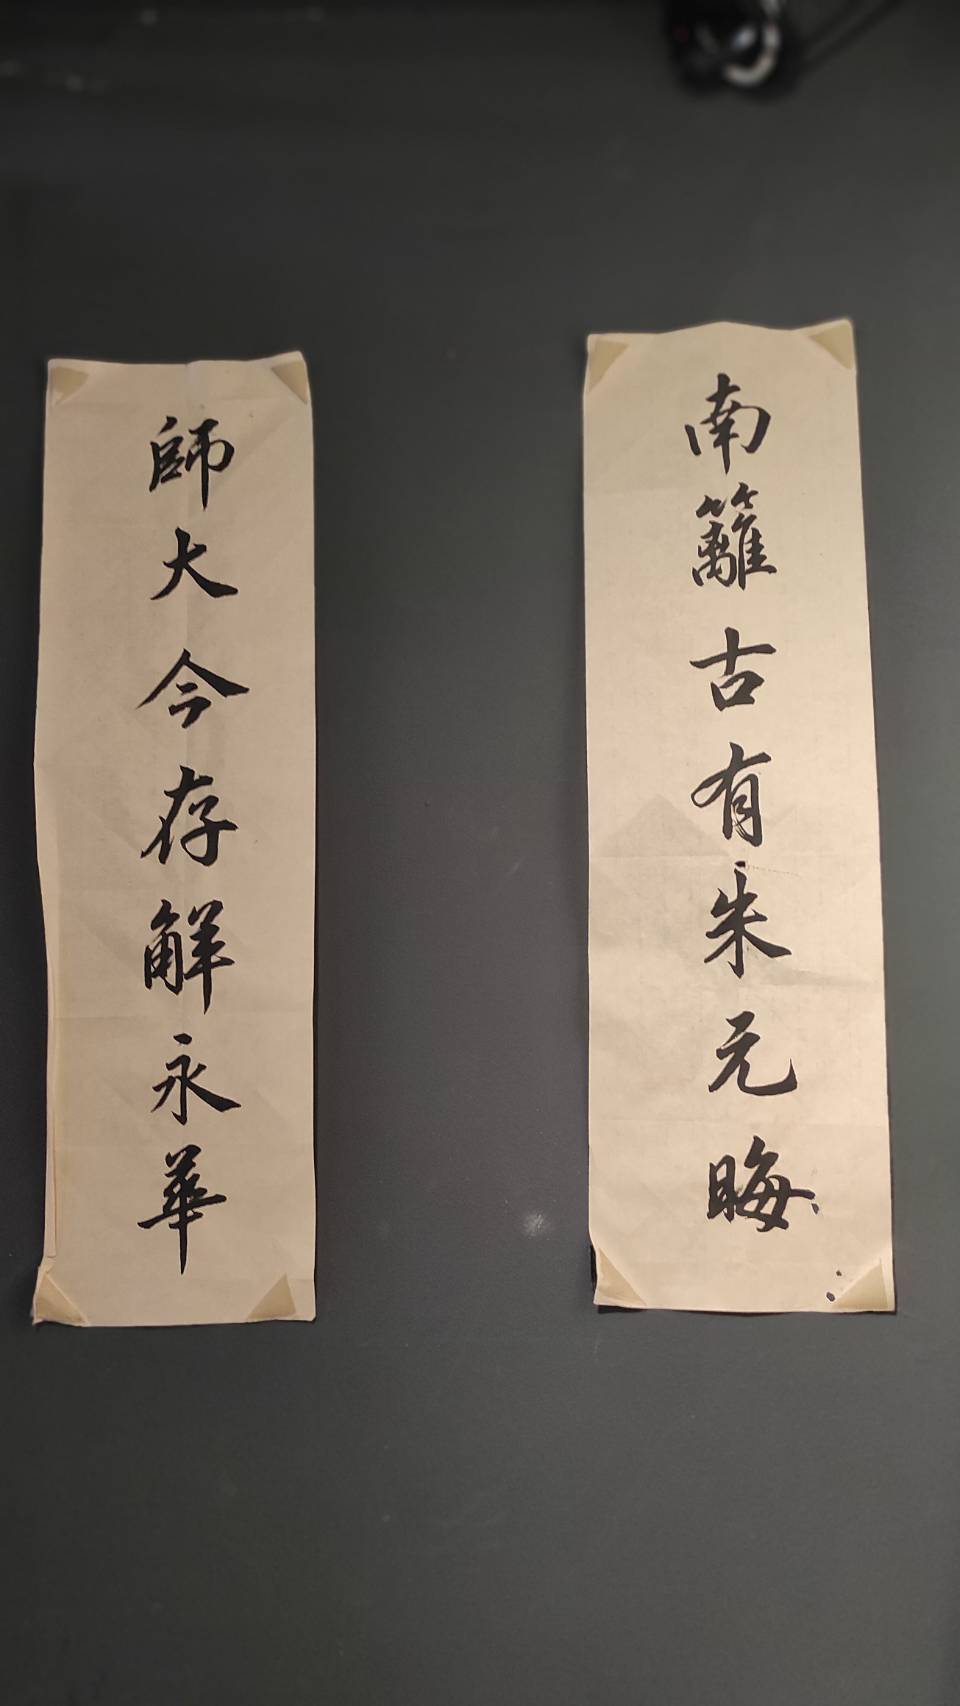 南籬古有朱元晦
師大今存解永華